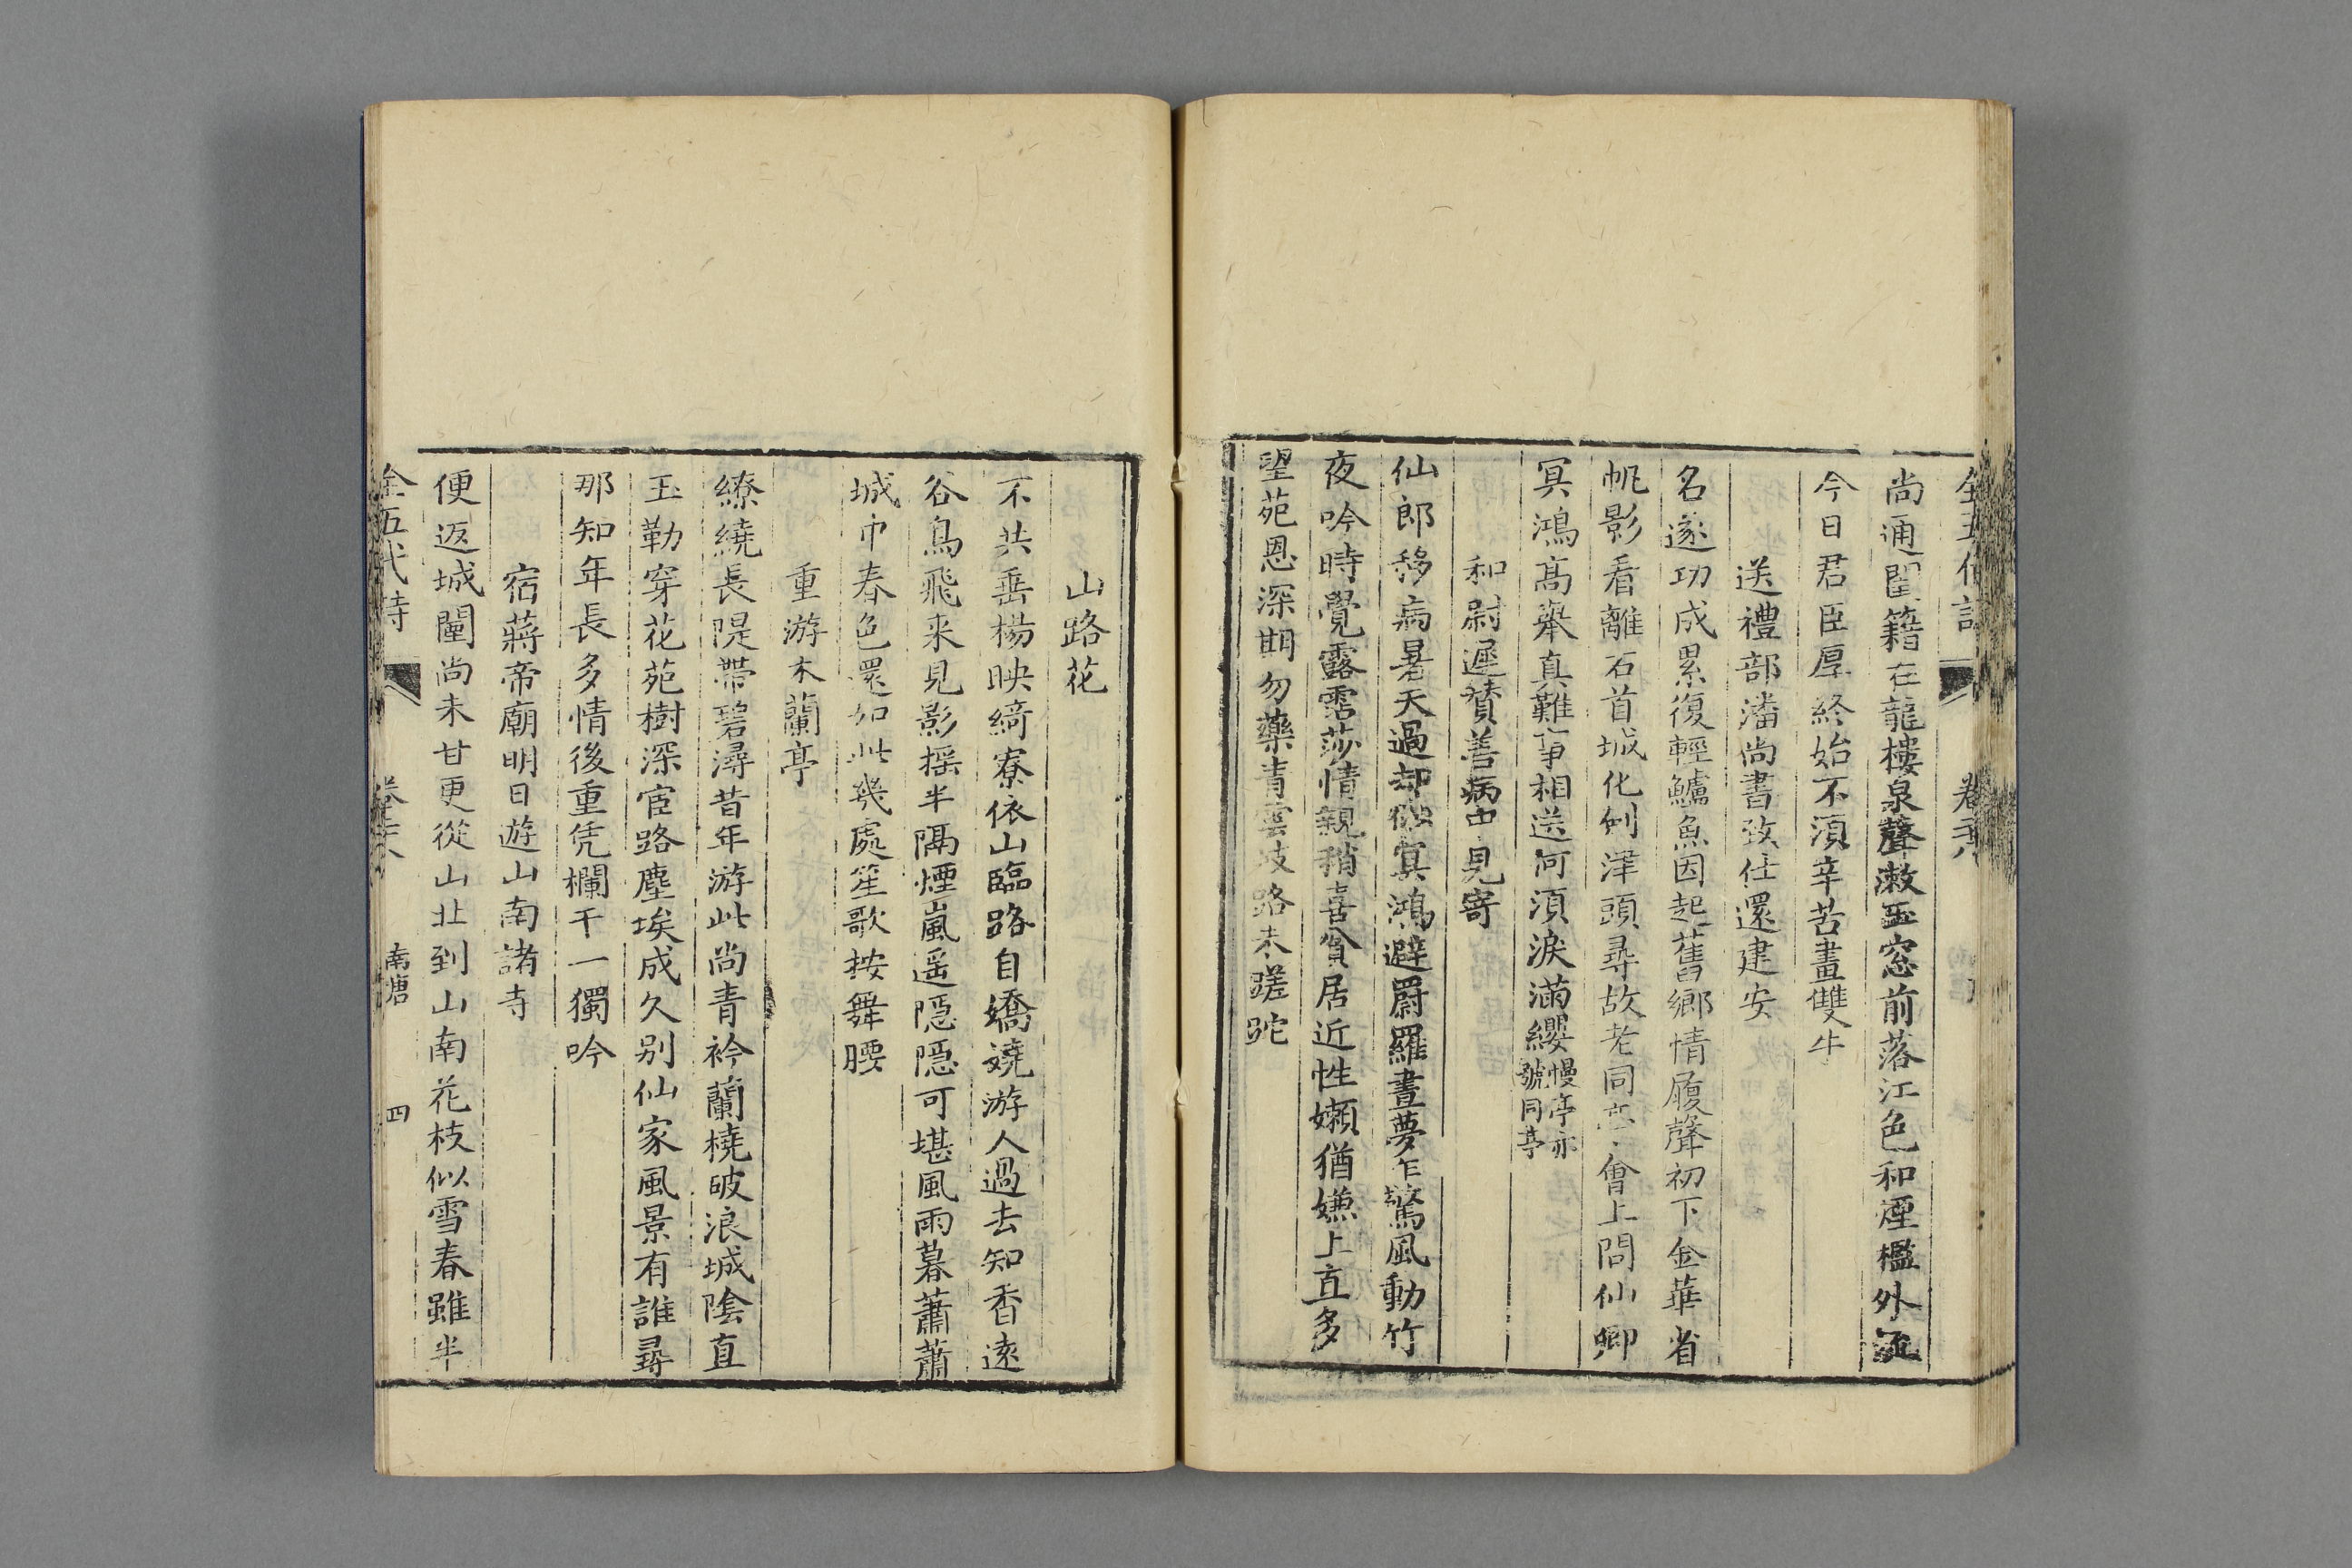 尚通閨籍在龍樓泉聲漱玉窓前落江色和煙檻外流
今日君臣厚終始不湏辛苦畫雙牛
送禮部潘尚書致仕還建安
名遂功成累復輕鱸魚因起舊鄉情履聲初下金華省
帆影看離石首城化劍津頭尋故老同亭會上問仙卿
冥鴻髙舉真難事相送何湏淚滿纓慢亭亦號同亭
和尉遲賛善病中見寄
仙郎移病暑天過却似冥鴻避罻羅晝夢乍驚風動竹
夜吟時覺露霑莎情親稍喜貧居近性嬾猶嫌上直多
望苑恩深期勿藥青雲岐路未蹉跎
山路花
不共垂楊映綺寮依山臨路自嬌嬈游人過去知香逺
谷鳥飛来見影摇半隔煙嵐遥隱隱可堪風雨暮蕭蕭
城中春色還如此幾處笙歌按舞腰
重游木蘭亭
繚繞長隄帶碧潯昔年游此尚青衿蘭橈破浪城陰直
玉勒穿花苑樹深宦路塵埃成久别仙家風景有誰尋
那知年長多情後重凭欄干一獨吟
宿蔣帝廟明日遊山南諸寺
便返城闉尚未甘更從山北到山南花枝似雪春雖半
全五代詩
南唐
四